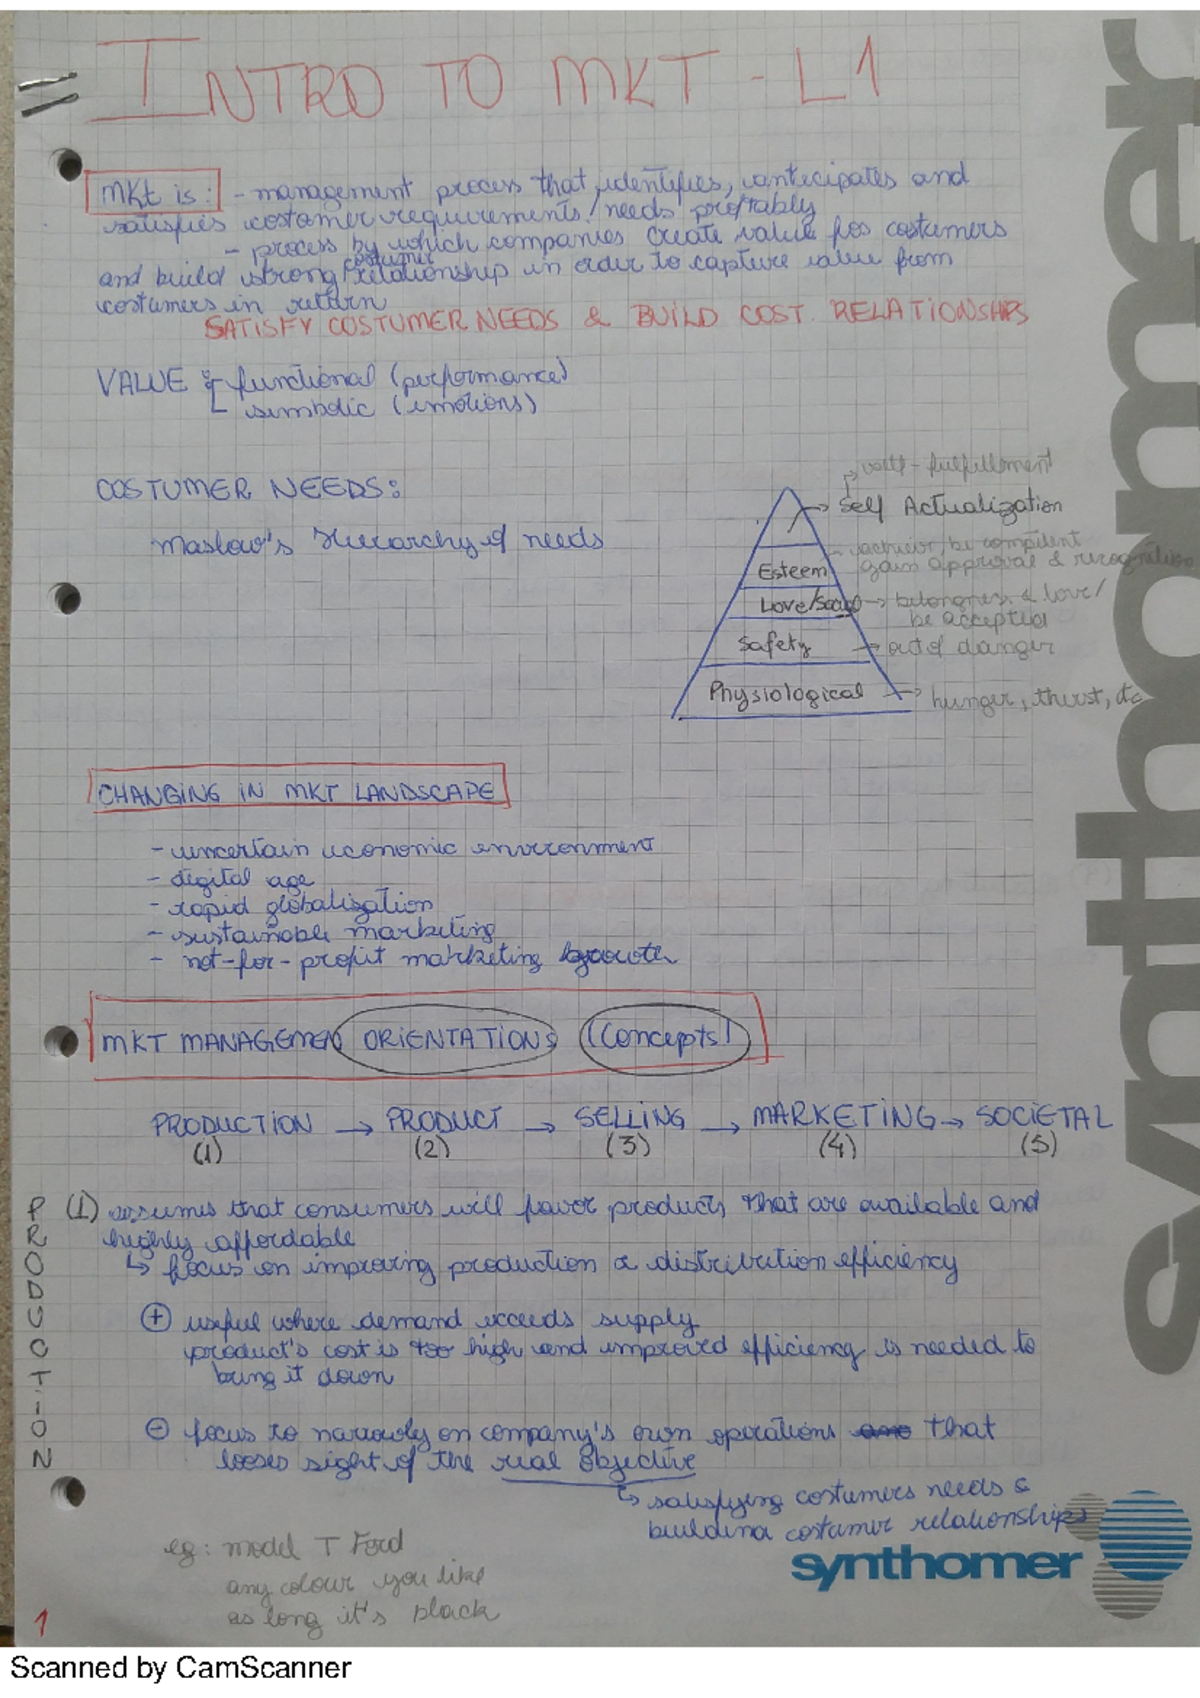 INTRO TO MKT - L1
MKt is: - management process that identifies, anticipates and
satisfies costumer requirements/needs profitably
- process by which companies create value for costumers
and build strong costumer relationship in order to capture value from
costumers in return
SATISFY COSTUMER NEEDS & BUILD COST. RELATIONSHIPS
VALUE: functional (performance)
simbolic (emotions)
COSTUMER NEEDS:
Maslow's Hierarchy of needs
self-fulfillment
Self Actualization
achieve, be competent
Esteem gain approval & recognition
Love/Social → belongness & love/
be accepted
Safety → out of danger
Physiological → hunger, thirst, etc
CHANGING IN MKT LANDSCAPE
- uncertain economic environment
- digital age
- rapid globalization
- sustainable marketing
- not-for-profit marketing growth
MKT MANAGEMENT ORIENTATIONS (Concepts)
PRODUCTION → PRODUCT → SELLING → MARKETING → SOCIETAL
(1) (2) (3) (4) (5)
PRODUCTION
(1) assumes that consumers will favor products that are available and
highly affordable
↳ focus on improving production & distribution efficiency
⊕ useful where demand exceeds supply
product's cost is too high and improved efficiency is needed to
bring it down
⊖ focus to narrowly on company's own operations that
looses sight of the real objective
↳ satisfying costumers needs &
building costumer relationships
eg: model T Ford
any colour you like
as long it's black
1
synthomer
synthomer
Scanned by CamScanner